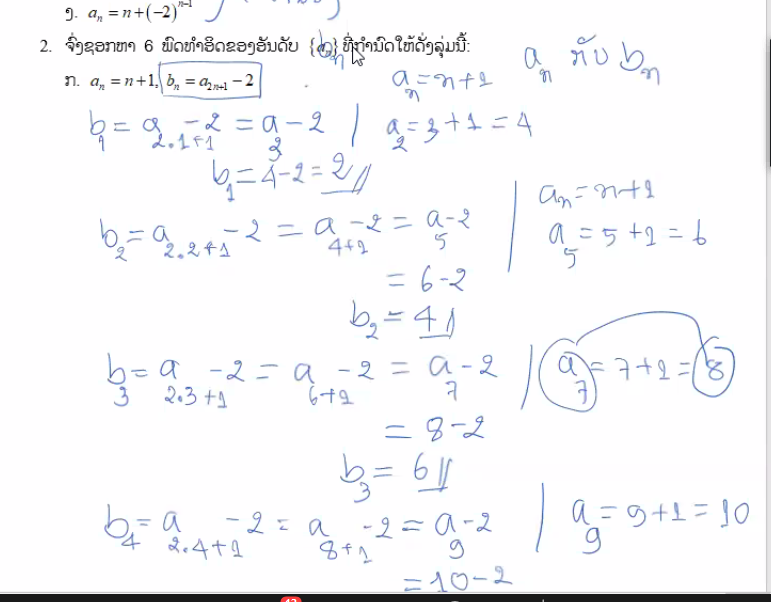 ໑. aₙ = n + (−2)ⁿ⁻¹
2. ຈົ່ງຊອກຫາ 6 ພົດທຳອິດຂອງອັນດັບ {bₙ} ທີ່ກຳນົດໃຫ້ດັ່ງລຸ່ມນີ້:
ກ. aₙ = n+1, bₙ = a₂ₙ₊₁ − 2
aₙ = n+1 aₙ ກັບ bₙ
b₁ = a₂.₁₊₁ − 2 = a₃ − 2 | a₂ = 3+1 = 4
b₁ = 4−2 = 2//
b₂ = a₂.₂₊₁ − 2 = a₄₊₁ − 2 = a₅ − 2 | aₙ = n+1
a₅ = 5+1 = 6
= 6−2
b₂ = 4//
b₃ = a₂.₃₊₁ − 2 = a₆₊₁ − 2 = a₇ − 2 | a₇ = 7+1 = 8
= 8−2
b₃ = 6//
b₄ = a₂.₄₊₁ − 2 = a₈₊₁ − 2 = a₉ − 2 | a₉ = 9+1 = 10
= 10−2